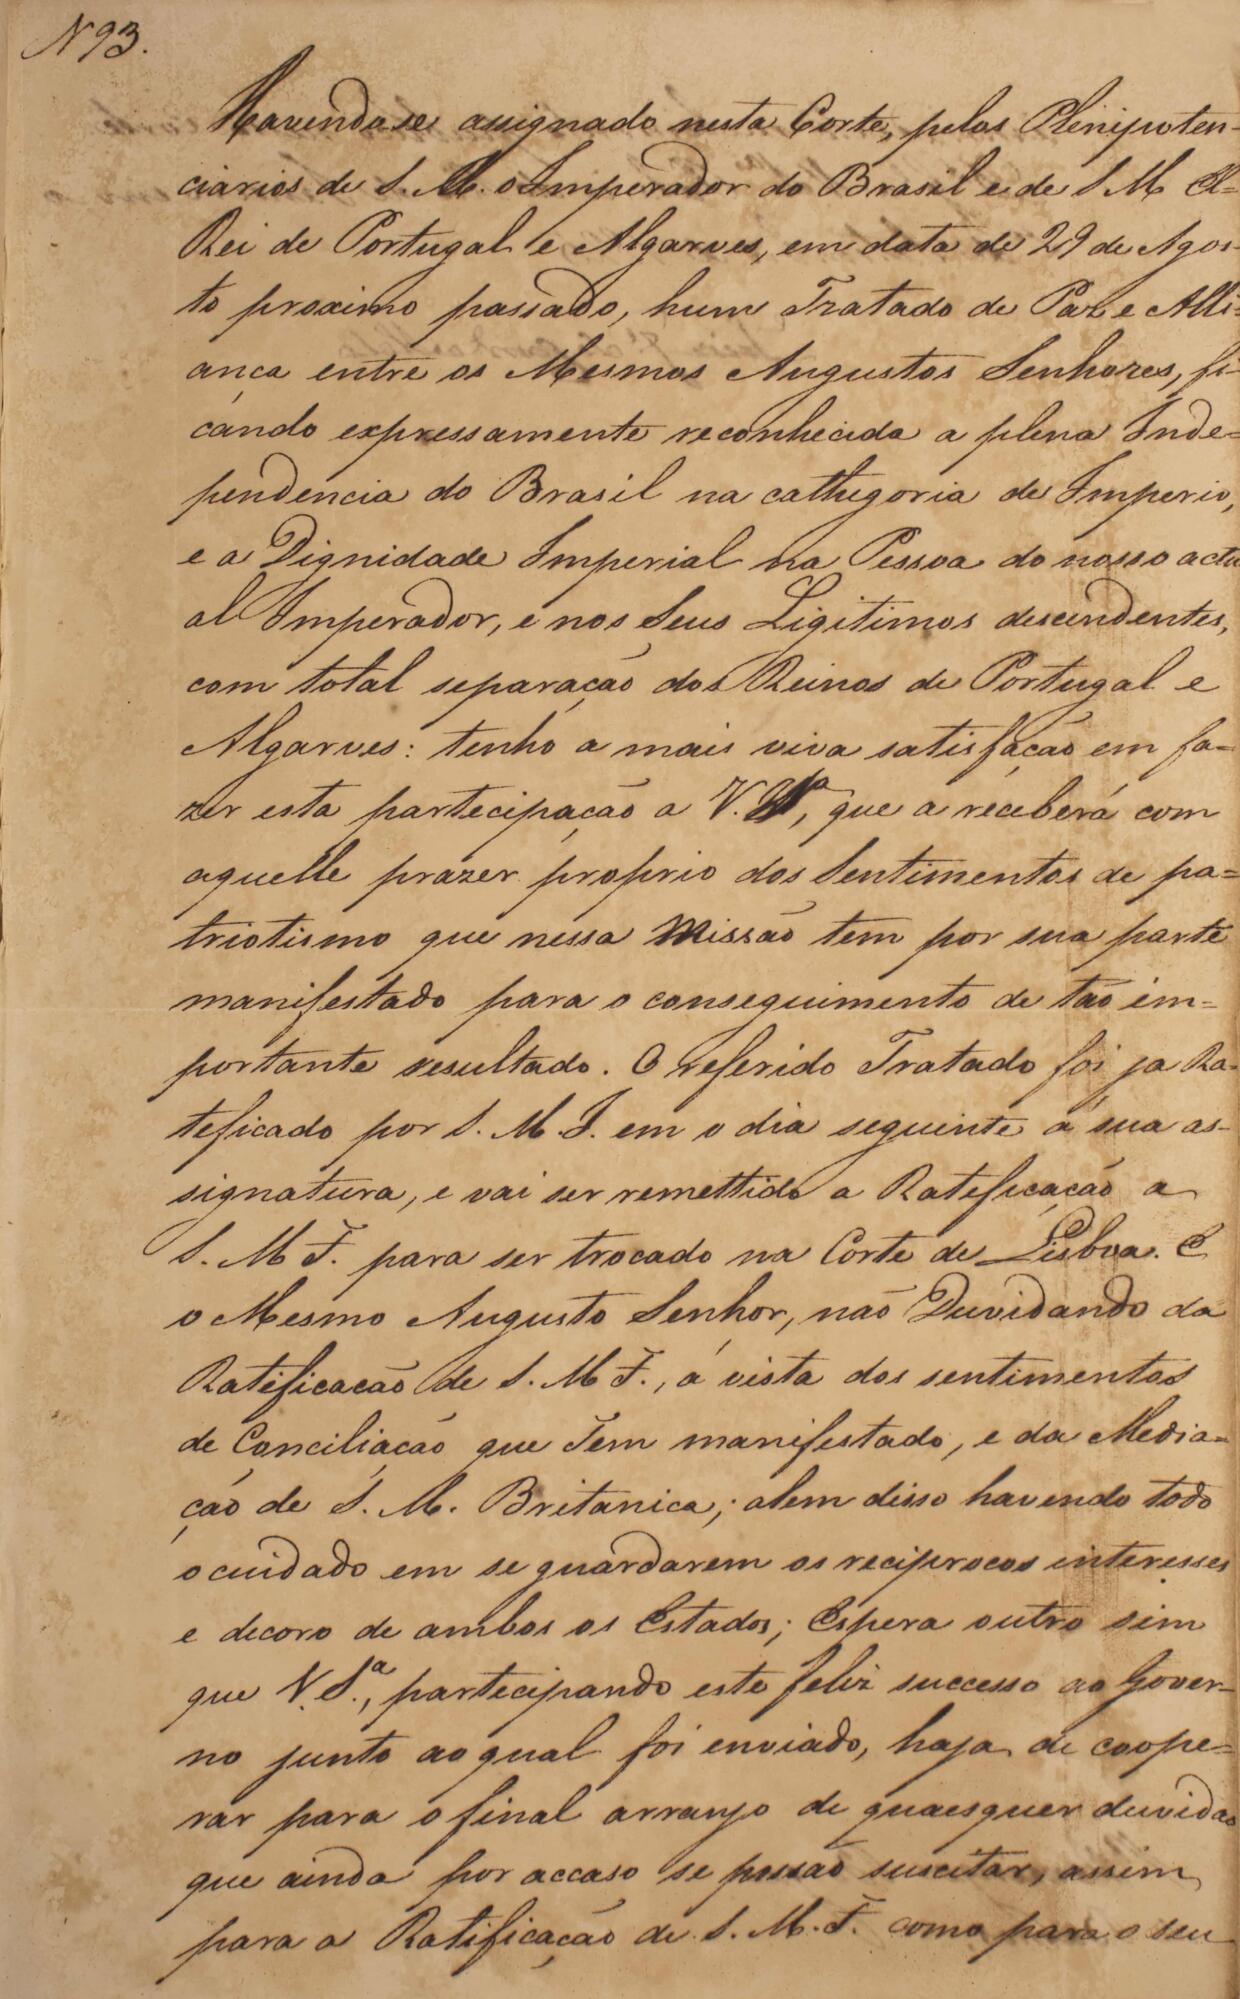 N 93.
Havendose assignado nesta Corte, pelos Plenipoten-
ciarios de S. M. o Imperador do Brasil e de S M El-
Rei de Portugal e Algarves, em data de 29 de Agos-
to proximo passado, hum Tratado de Paz e Alli-
ança entre os Mesmos Augustos Senhores, fi-
cando expressamente reconhecida a plena Inde-
pendencia do Brasil na cathegoria de Imperio,
e a Dignidade Imperial na Pessoa do nosso actu
al Imperador, e nos Seus Ligitimos descendentes,
com total separação dos Reinos de Portugal e
Algarves: tenho a mais viva satisfação em fa-
zer esta partecipação a V. Sª, que a receberá com
aquelle prazer proprio dos Sentimentos de pa-
triotismo que nessa Missão tem por sua parte
manifestado para o conseguimento de tão im-
portante resultado. O referido Tratado foi ja Ra-
teficado por S. M. I. em o dia seguinte á sua as-
signatura, e vai ser remettido a Ratificação a
S. M F. para ser trocado na Corte de Lisboa. E
o Mesmo Augusto Senhor, não Duvidando da
Ratificação de S. M F., á vista dos sentimentos
de Conciliação que Tem manifestado, e da Media-
ção de S. M. Britanica; alem disso havendo todo
o cuidado em se guardarem os reciprocos interesses
e decoro de ambos os Estados; Espera outro sim
que V. S.ª, partecipando este feliz successo ao Gover-
no junto ao qual foi enviado, haja de coope-
rar para o final arranjo de quaesquer duvidas
que ainda por accaso se possão suscitar, assim
para a Ratificação de S. M. F. como para o seu